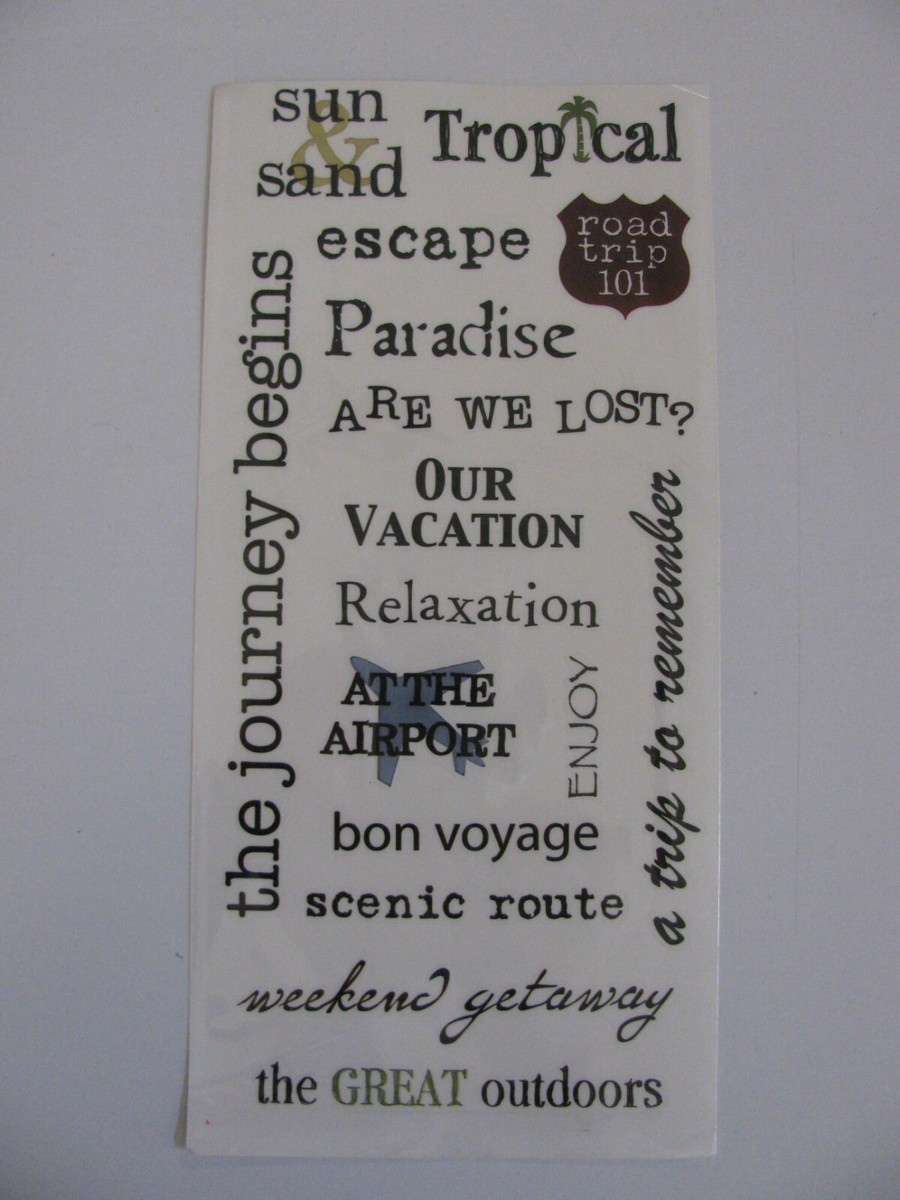 sun
&
sand
Tropical
escape
road
trip
101
the journey begins
Paradise
ARE WE LOST?
OUR
VACATION
Relaxation
a trip to remember
AT THE
AIRPORT
ENJOY
bon voyage
scenic route
weekend getaway
the GREAT outdoors